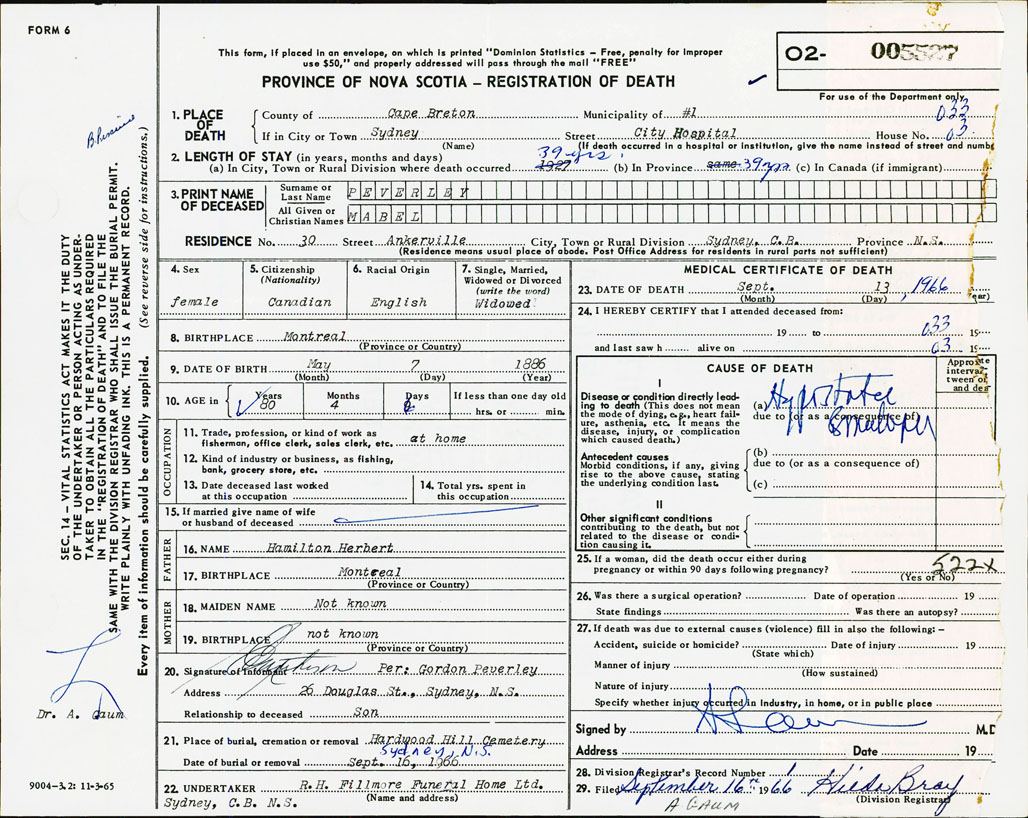 FORM 6
This form, if placed in an envelope, on which is printed "Dominion Statistics – Free, penalty for improper
use $50," and properly addressed will pass through the mail "FREE"
PROVINCE OF NOVA SCOTIA – REGISTRATION OF DEATH
O2- 005527
For use of the Department only
033
03
1. PLACE OF DEATH
County of Cape Breton Municipality of #1
If in City or Town Sydney Street City Hospital House No.
(Name) (If death occurred in a hospital or institution, give the name instead of street and numb
2. LENGTH OF STAY (in years, months and days)
39 yrs.
(a) In City, Town or Rural Division where death occurred 1927 (b) In Province same 39 yrs (c) In Canada (if immigrant)
3. PRINT NAME OF DECEASED
Surname or Last Name PEVERLEY
All Given or Christian Names MABEL
RESIDENCE No. 30 Street Ankerville City, Town or Rural Division Sydney, C.B. Province N.S.
(Residence means usual place of abode. Post Office Address for residents in rural parts not sufficient)
4. Sex
female
5. Citizenship
(Nationality)
Canadian
6. Racial Origin
English
7. Single, Married,
Widowed or Divorced
(write the word)
Widowed
8. BIRTHPLACE Montreal
(Province or Country)
9. DATE OF BIRTH May 7 1886
(Month) (Day) (Year)
10. AGE in Years Months Days If less than one day old
80 4 hrs. or min.
OCCUPATION
11. Trade, profession, or kind of work as
fisherman, office clerk, sales clerk, etc. at home
12. Kind of industry or business, as fishing,
bank, grocery store, etc.
13. Date deceased last worked
at this occupation
14. Total yrs. spent in
this occupation
15. If married give name of wife
or husband of deceased
FATHER
16. NAME Hamilton Herbert
17. BIRTHPLACE Montreal
(Province or Country)
MOTHER
18. MAIDEN NAME Not known
19. BIRTHPLACE not known
(Province or Country)
20. Signature of Informant Per: Gordon Peverley
Address 26 Douglas St., Sydney, N.S.
Relationship to deceased Son
21. Place of burial, cremation or removal Hardwood Hill Cemetery
Sydney, N.S.
Date of burial or removal Sept. 16, 1966
22. UNDERTAKER R.H. Fillmore Funeral Home Ltd.
(Name and address)
Sydney, C.B. N.S.
MEDICAL CERTIFICATE OF DEATH
23. DATE OF DEATH Sept. 13, 1966
(Month) (Day) ear)
24. I HEREBY CERTIFY that I attended deceased from:
19 to 033 19
and last saw h alive on 03 19
CAUSE OF DEATH
Approx te
interval
tween of
and dea
I
Disease or condition directly lead-
ing to death (This does not mean
the mode of dying, e.g., heart fail-
ure, asthenia, etc. It means the
disease, injury, or complication
which caused death.)
(a) Hypostatic
due to (or as a consequence of)
Antecedent causes
Morbid conditions, if any, giving
rise to the above cause, stating
the underlying condition last.
(b)
due to (or as a consequence of)
(c)
II
Other significant conditions
contributing to the death, but not
related to the disease or condi-
tion causing it.
25. If a woman, did the death occur either during
pregnancy or within 90 days following pregnancy?
522X
(Yes or No)
26. Was there a surgical operation? Date of operation 19
State findings Was there an autopsy?
27. If death was due to external causes (violence) fill in also the following: –
Accident, suicide or homicide? Date of injury 19
(State which)
Manner of injury
(How sustained)
Nature of injury
Specify whether injury occurred in industry, in home, or in public place
Signed by M.D
Address Date 19
28. Division Registrar's Record Number 1
29. Filed September 16th 1966 Hilda Bray
(Division Registrar)
A GAUM
SEC. 14 – VITAL STATISTICS ACT MAKES IT THE DUTY
OF THE UNDERTAKER OR PERSON ACTING AS UNDER-
TAKER TO OBTAIN ALL THE PARTICULARS REQUIRED
IN THE "REGISTRATION OF DEATH" AND TO FILE THE
SAME WITH THE DIVISION REGISTRAR WHO SHALL ISSUE THE BURIAL PERMIT.
WRITE PLAINLY WITH UNFADING INK. THIS IS A PERMANENT RECORD.
Every item of information should be carefully supplied. (See reverse side for instructions.)
Dr. A. Gaum
9004-3.2: 11-3-65